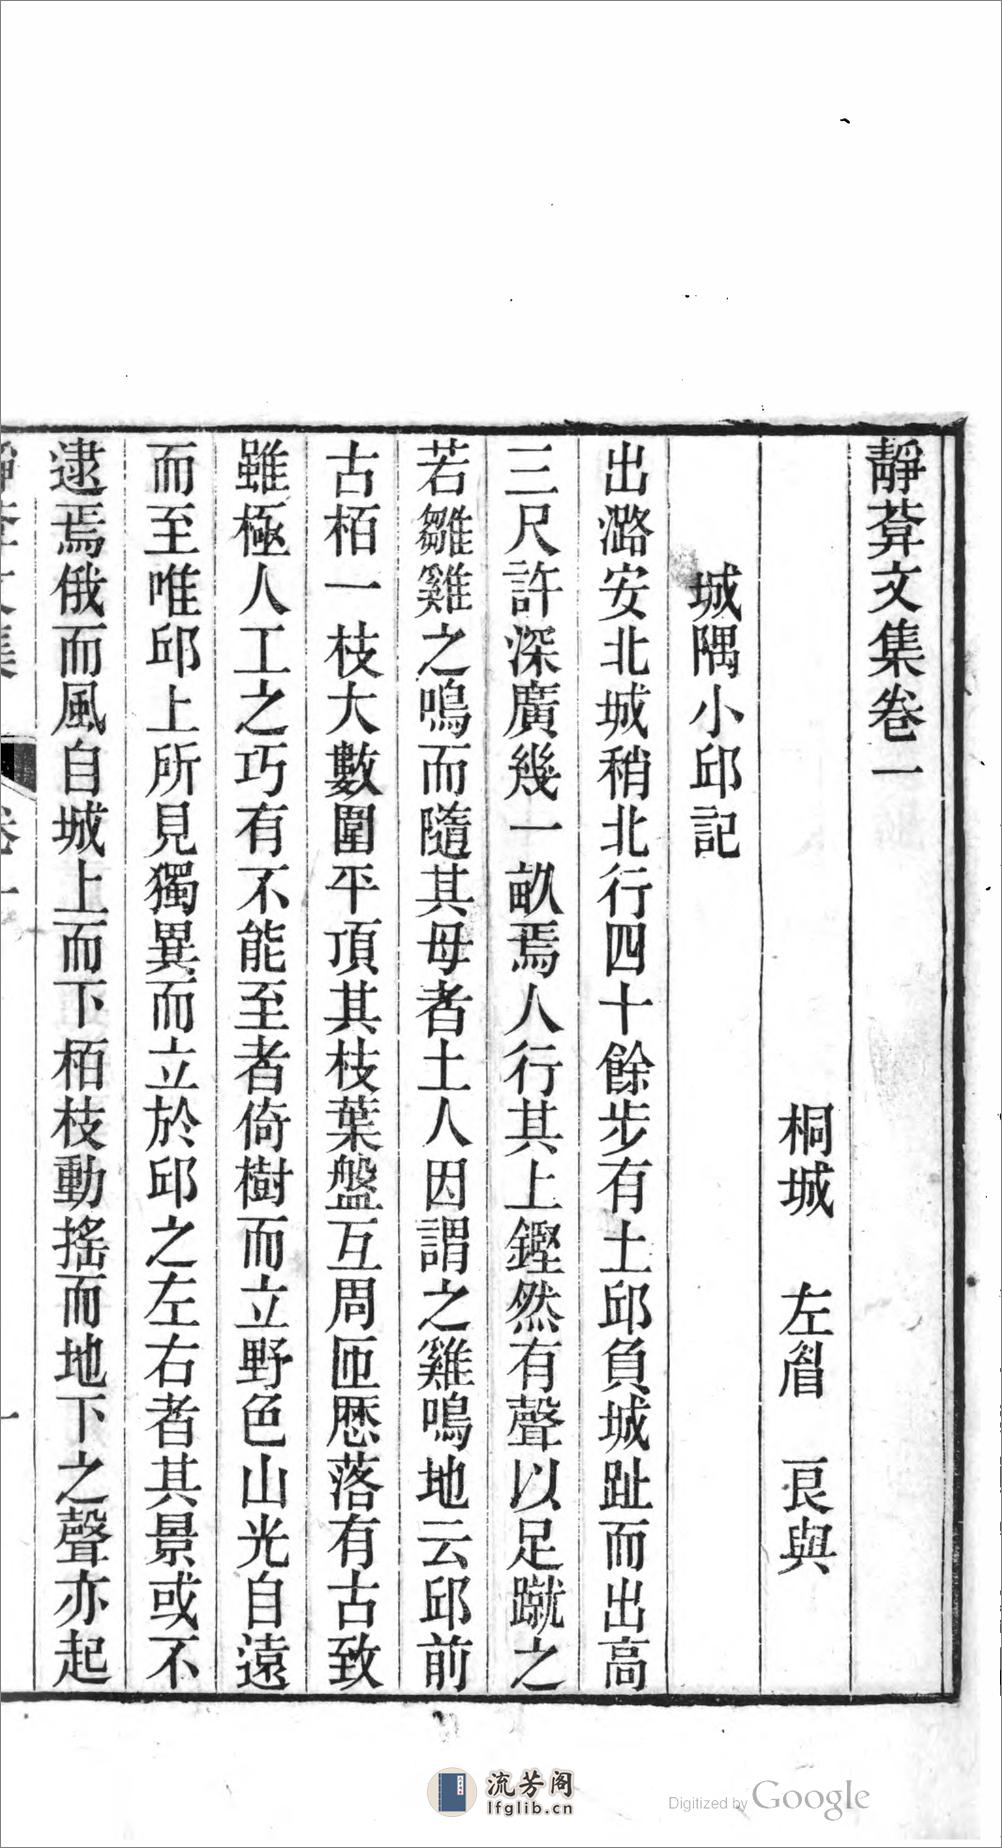 靜葊文集卷一
桐城　左睂　良與
城隅小邱記
出潞安北城稍北行四十餘步有土邱負城趾而出高
三尺許深廣幾一畝焉人行其上鏗然有聲以足蹴之
若雛雞之鳴而隨其母者土人因謂之雞鳴地云邱前
古栢一枝大數圍平頂其枝葉盤互周匝厯落有古致
雖極人工之巧有不能至者倚樹而立野色山光自遠
而至唯邱上所見獨異而立於邱之左右者其景或不
逮焉俄而風自城上而下栢枝動搖而地下之聲亦起
靜葊文集
卷一
一
流芳阁
lfglib.cn
Digitized by Google